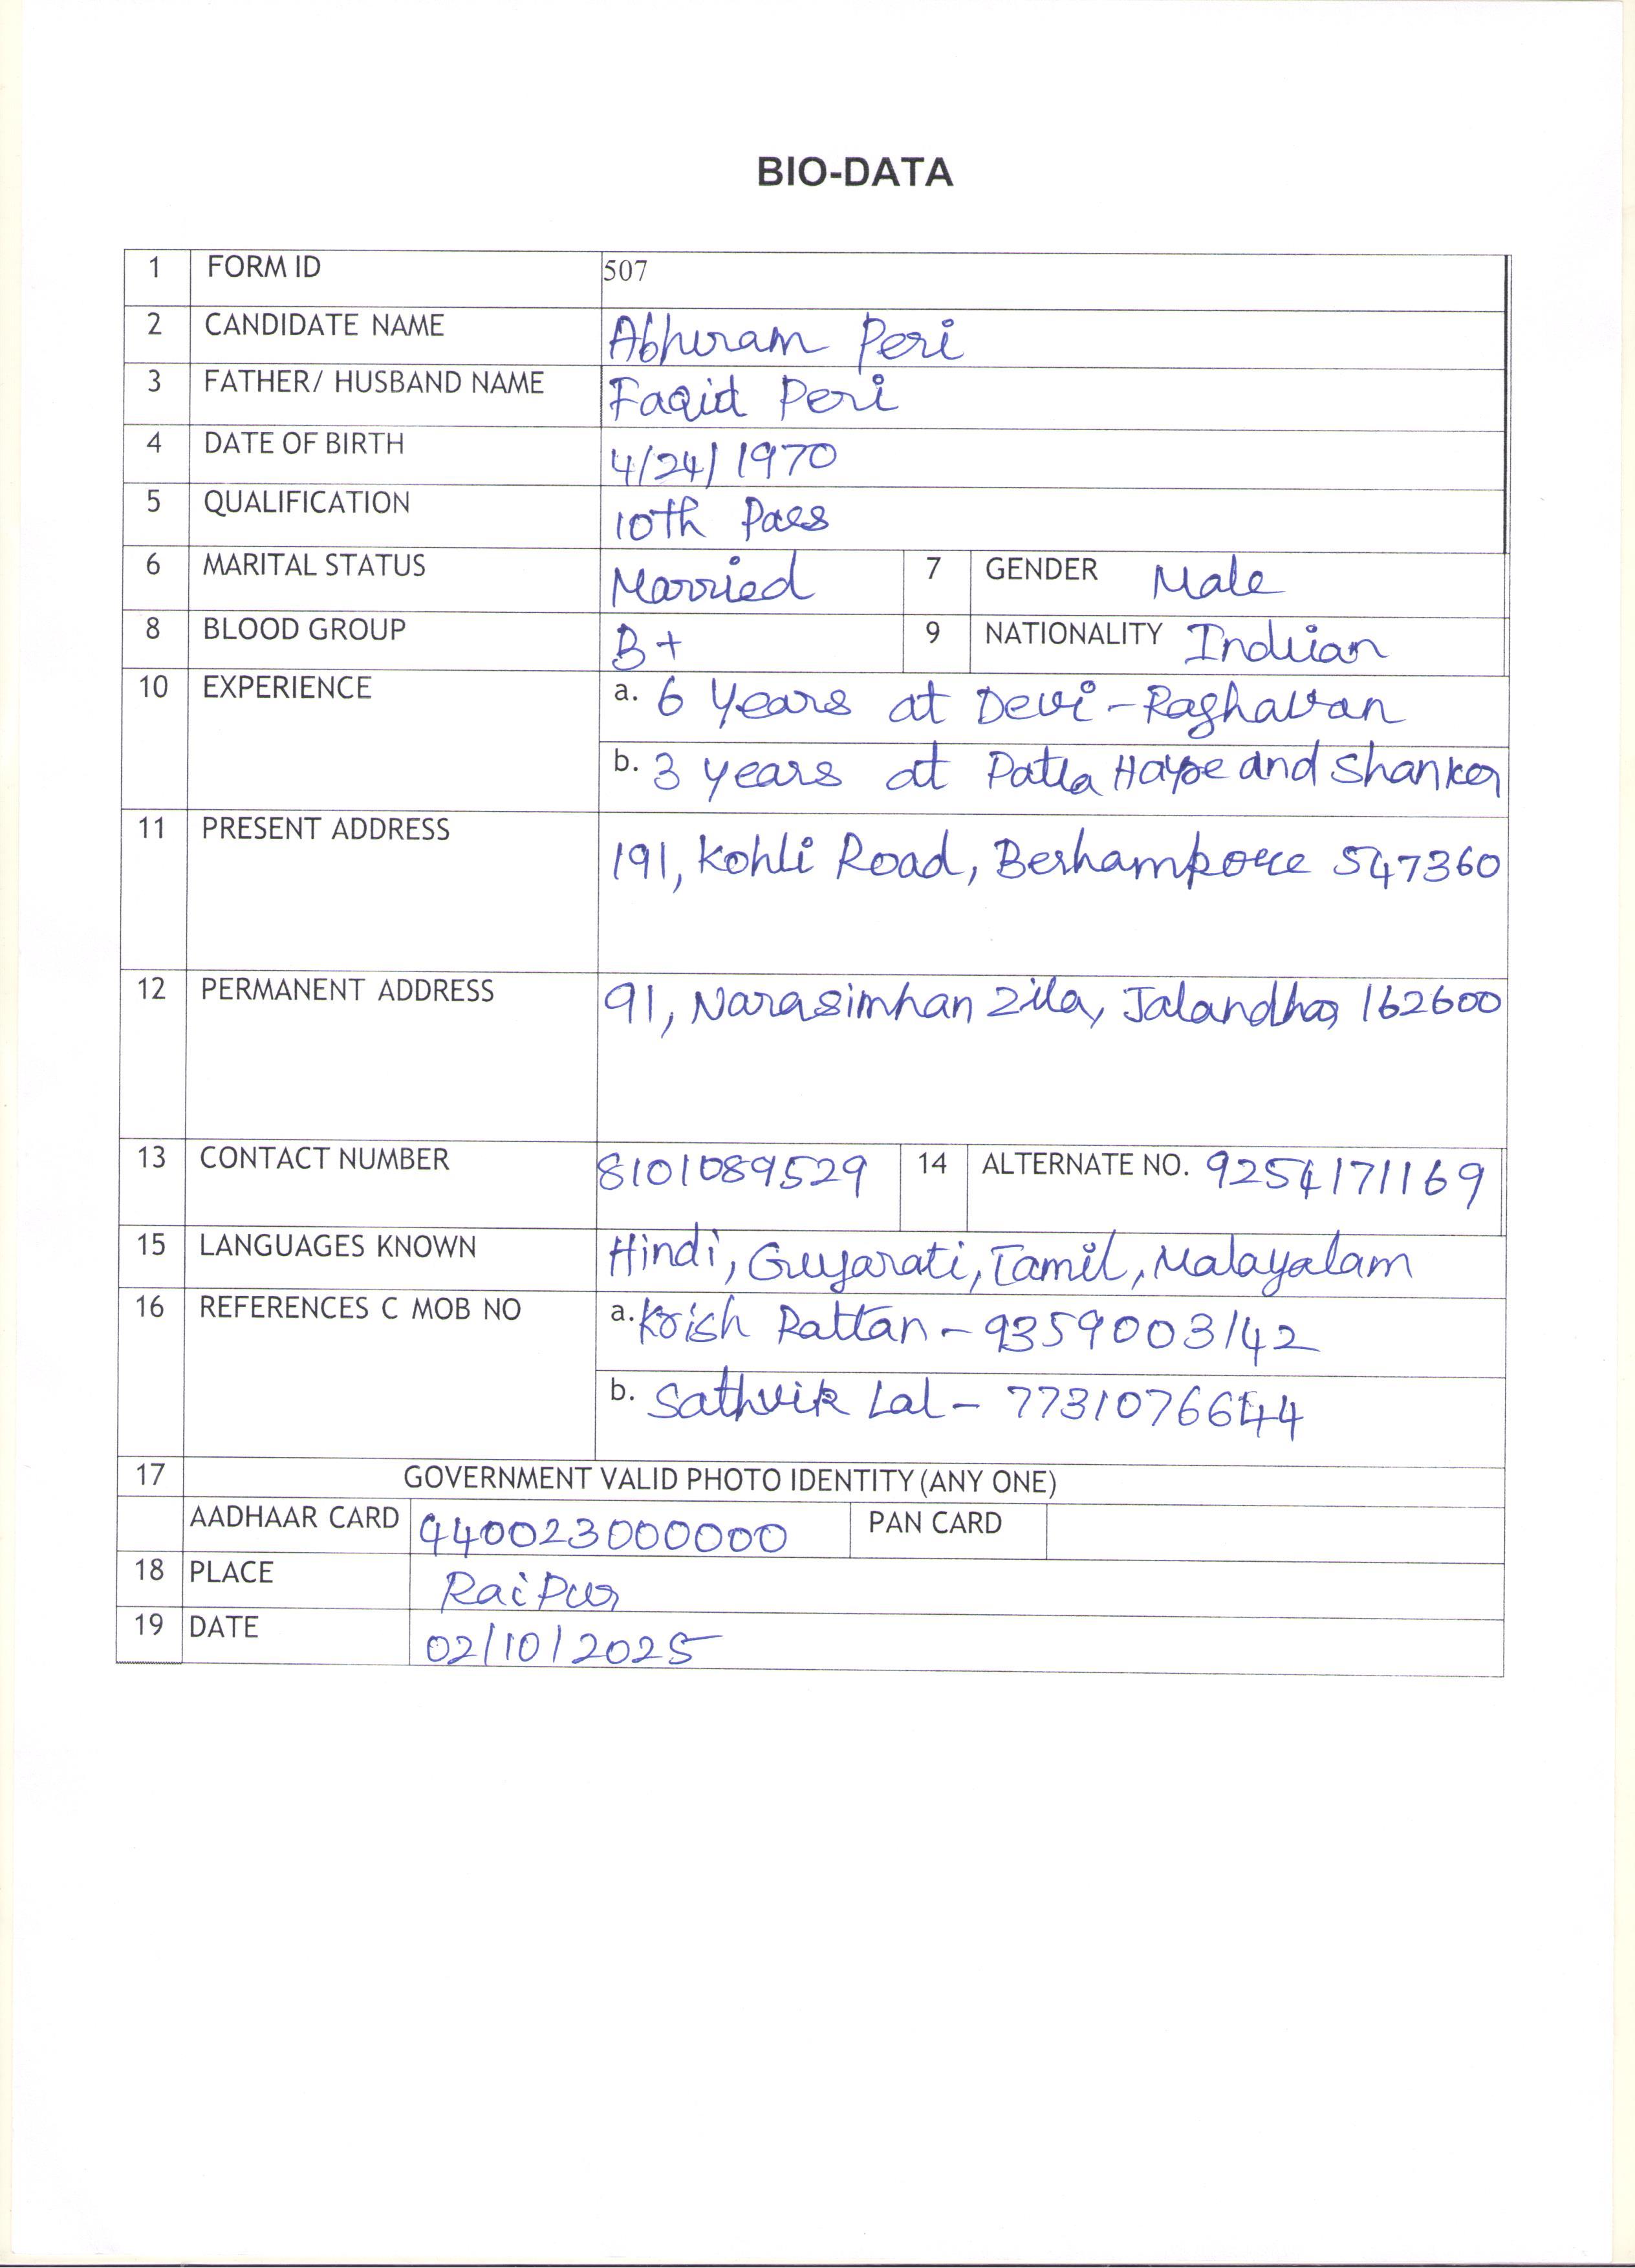 BIO-DATA
1 FORM ID 507
2 CANDIDATE NAME Abhiram Peri
3 FATHER/ HUSBAND NAME Faqid Peri
4 DATE OF BIRTH 4/24/1970
5 QUALIFICATION 10th Pass
6 MARITAL STATUS Married 7 GENDER Male
8 BLOOD GROUP B+ 9 NATIONALITY Indian
10 EXPERIENCE a. 6 years at Devi-Raghavan
b. 3 years at Patla Hayer and Shanker
11 PRESENT ADDRESS 191, Kohli Road, Berhampore 547360
12 PERMANENT ADDRESS 91, Narasimhan Zila, Jalandhar 162600
13 CONTACT NUMBER 8101089529 14 ALTERNATE NO. 9254171169
15 LANGUAGES KNOWN Hindi, Gujarati, Tamil, Malayalam
16 REFERENCES C MOB NO a. Krish Rattan - 9359003142
b. Sathvik Lal - 7731076644
17 GOVERNMENT VALID PHOTO IDENTITY (ANY ONE)
AADHAAR CARD 940023000000 PAN CARD
18 PLACE Raipur
19 DATE 02/10/2025